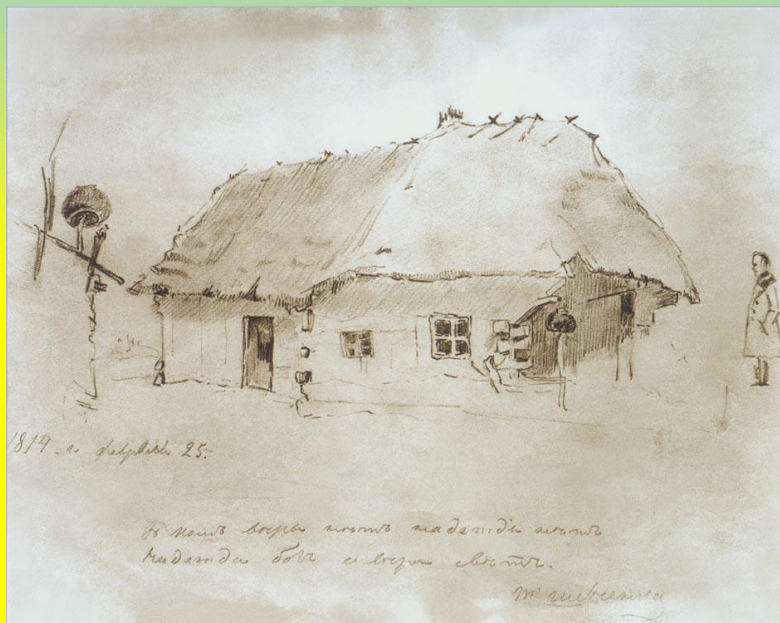 1814-го февраля 25.
въ комъ вѣры нѣтъ надежды нѣтъ
Надежда богъ а вѣра свѣтъ.
Т Шевченко